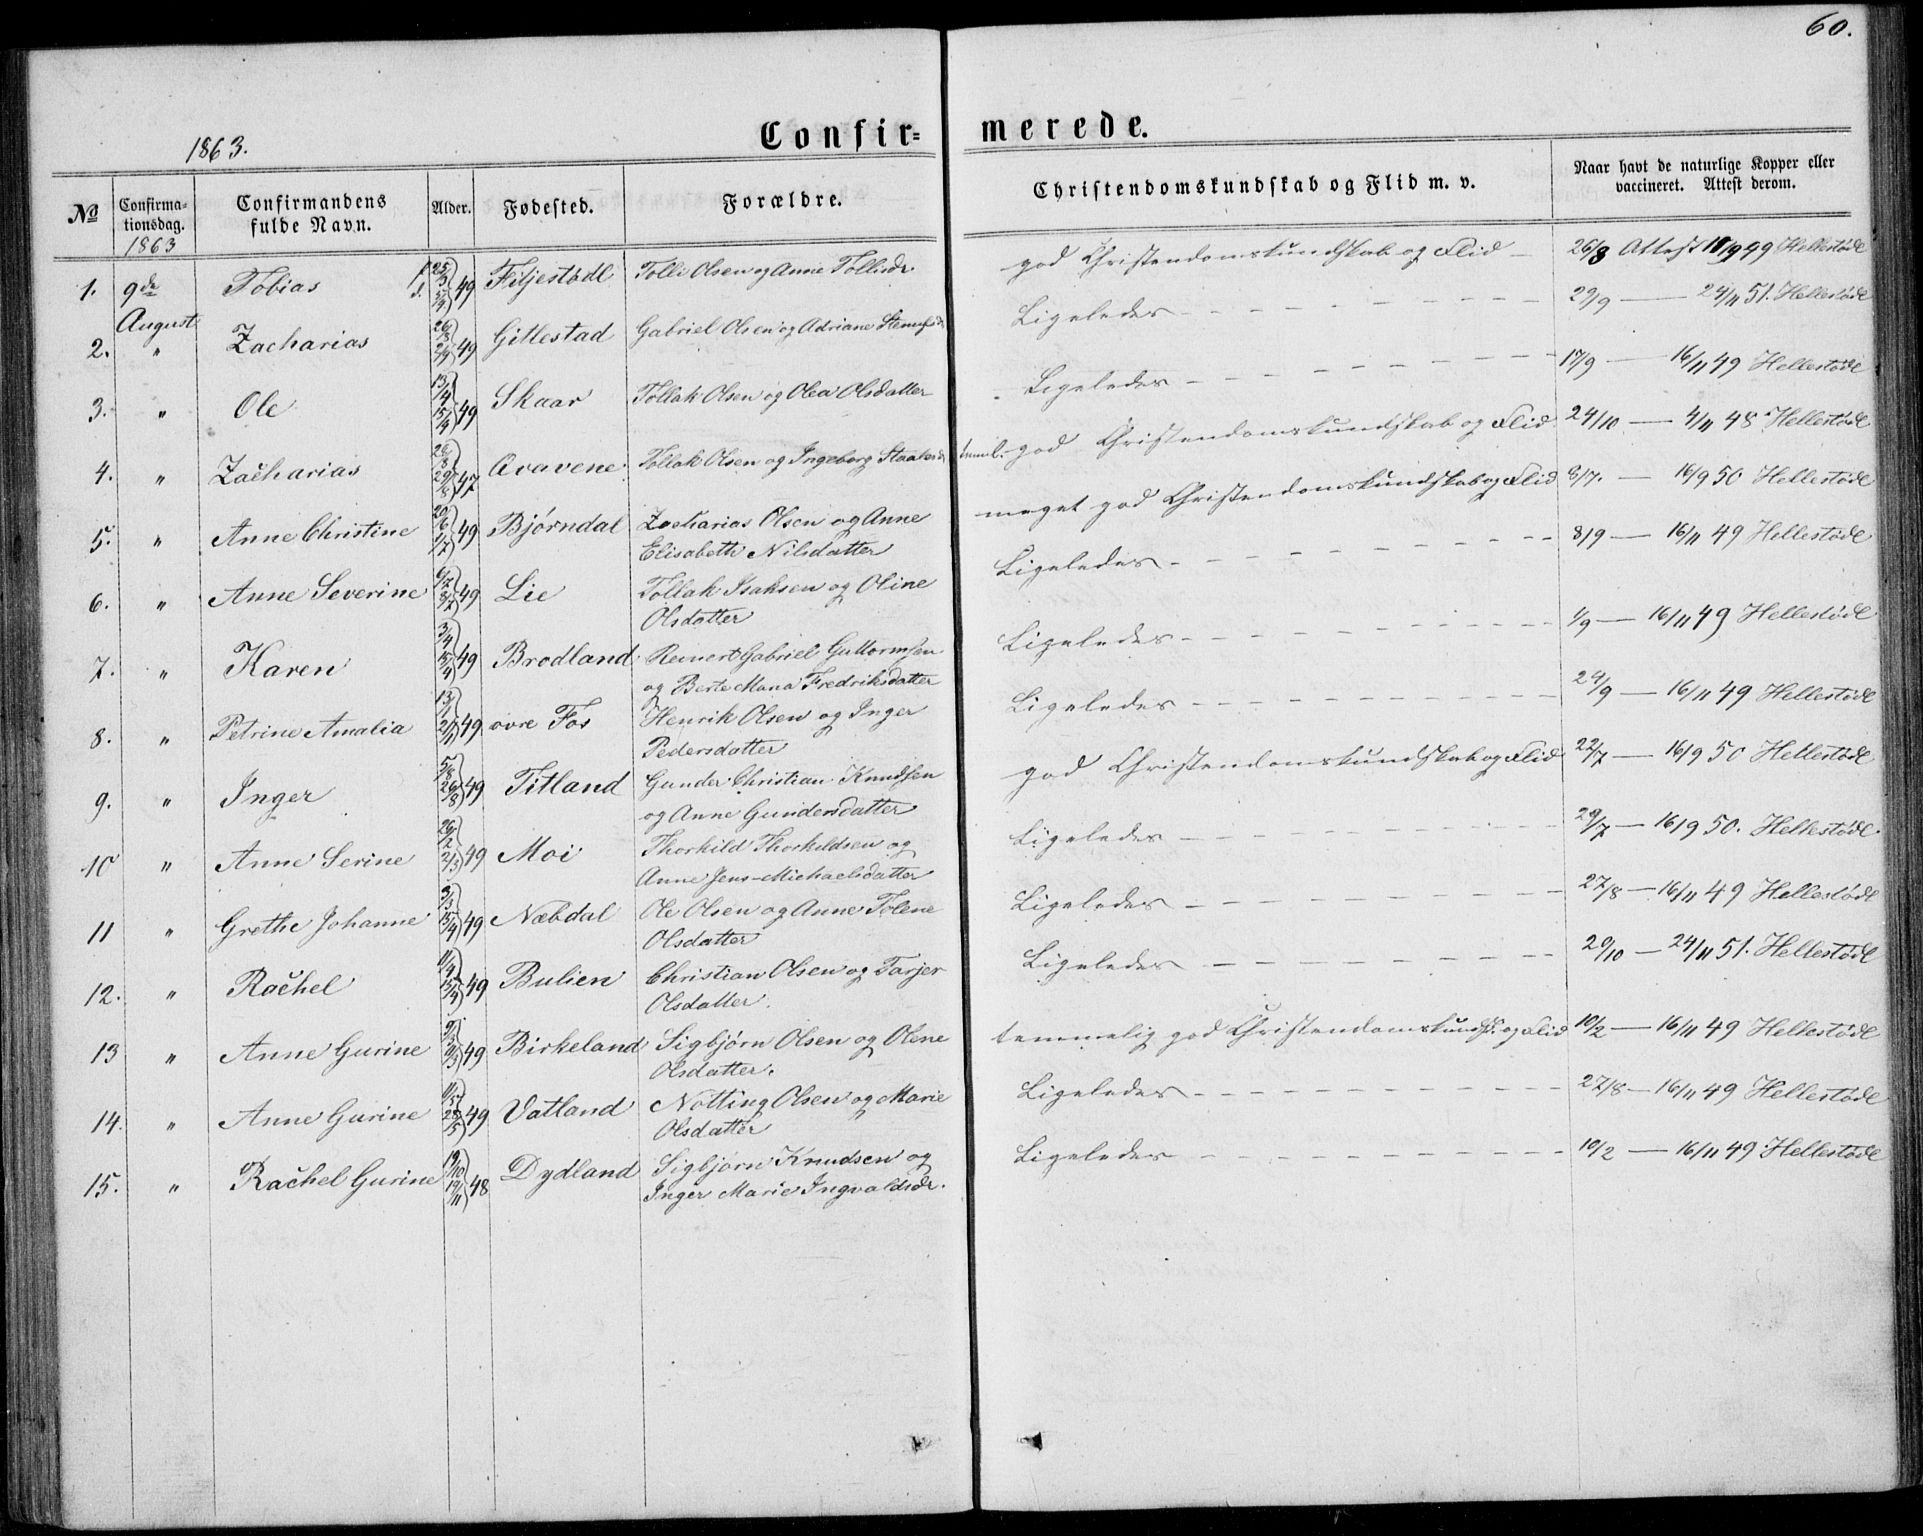 60.
1863.
Confir- merede.
No Confirmationsdag. Confirmandens fulde Navn. Alder. Fødested. Forældre. Christendomskundskab og Flid m. v. Naar havt de naturlige Kopper eller vaccineret. Attest derom.
1863
1. 9de August Tobias f. 25/3 d. 5/4 49 Filjestødl Tolli Olsen og Anne Tollisdr. god Christendomskundskab og Flid 26/8 Attest 49 Hellestødl
2. " Zacharias 26/8 2/9 49 Gillestad Gabriel Olsen og Adriane Ligeledes 29/9 — 24/11 51. Hellestødl
3. " Ole 13/4 15/4 49 Skaar Tollak Olsen og Olea Olsdatter Ligeledes 17/9 — 16/11 49 Hellestødl
4. " Zacharias 47 Avavene Tollak Olsen og Ingeborg temml. god Christendomskundskab og Flid 24/10 — 4/11 48 Hellestødl
5. " Anne Christine 20/6 1/7 49 Bjørndal Zacharias Olsen og Anne Elisabeth Nilsdatter meget god Christendomskundskab og Flid 6/7. — 16/9 50 Hellestødl
6. " Anne Severine 49 Lie Tollak Isaksen og Oline Olsdatter Ligeledes 8/9 — 16/11 49 Hellestødl
7. " Karen 3/4 15/4 49 Brodland Reinert Gabriel Guttormsen og Berte Maria Fredriksdatter Ligeledes 1/9 — 16/11 49 Hellestødl
8. " Petrine Amalia 13/1 21/1 49 øvre Fos Henrik Olsen og Inger Pedersdatter Ligeledes 24/9 — 16/11 49 Hellestødl
9. " Inger 5/8 26/8 49 Titland Gunder Christian Knudsen og Anne Gundersdatter god Christendomskundskab og Flid 22/7 — 16/9 50 Hellestødl
10 " Anne Serine 26/2 2/3 49 Moi Thorkild Thorkildsen og Anne Jens-Michaelsdatter Ligeledes 29/7 — 16/9 50. Hellestødl
11 " Grethe Johanne 3/3 15/4 49 Næbdal Ole Olsen og Anne Tolene Olsdatter Ligeledes 27/8 — 16/11 49 Hellestødl
12. " Rachel 11/4 15/4 49 Bulien Christian Olsen og Tarjer Olsdatter. Ligeledes 20/10 — 24/11 51. Hellestødl
13 " Anne Gurine 49 Birkeland Sigbjørn Olsen og Olene Olsdatter. temmelig god Christendomskundsk. og Flid 10/2 — 16/11 49 Hellestødl
14. " Anne Gurine 11/5 28/5 49 Vatland Notting Olsen og Marie Olsdatter Ligeledes 27/8 — 16/11 49 Hellestødl
15. " Rachel Gurine 19/10 19/11 48 Dydland Sigbjørn Knudsen og Inger Marie Ingvaldsdr. Ligeledes 10/2 — 16/11 49 Hellestødl